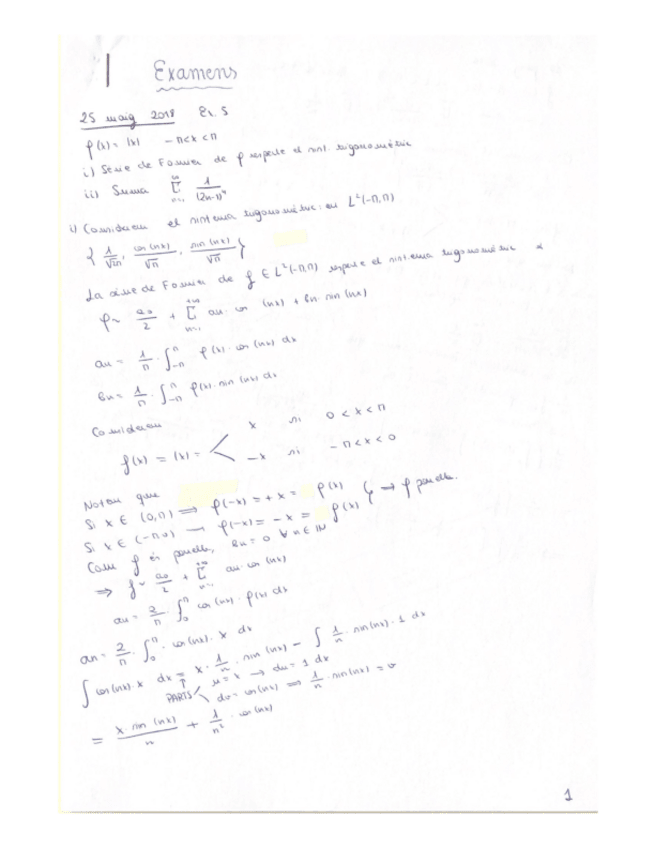 Examens
25 maig 2018 Ex. 5
f(x) = |x| -π<x<π
i) Sèrie de Fourier de f respecte el sist. trigonomètric
ii) Suma ∑ n=1 ∞ 1/(2n-1)⁴
i) Considerem el sistema trigonomètric en L²(-π,π)
{ 1/√2π, cos(nx)/√π, sin(nx)/√π }
La sèrie de Fourier de f ∈ L²(-π,π) respecte el sistema trigonomètric és
f ~ a₀/2 + ∑ n=1 +∞ an · cos(nx) + bn · sin(nx)
an = 1/π · ∫-π π f(x) · cos(nx) dx
bn = 1/π · ∫-π π f(x) · sin(nx) dx
Considerem
x si 0 < x < π
f(x) = |x| =
-x si -π < x < 0
Notem que
Si x ∈ (0,π) ⟹ f(-x) = +x = f(x)
Si x ∈ (-π,0) → f(-x) = -x = f(x) } → f parella.
Com f és parella, bn = 0 ∀n∈ℕ
⟹ f ~ a₀/2 + ∑ +∞ an · cos(nx)
an = 2/π · ∫0 π cos(nx) · f(x) dx
an = 2/π · ∫0 π · cos(nx) · x dx
∫ cos(nx) · x dx = x · 1/n · sin(nx) - ∫ 1/n · sin(nx) · 1 dx
PARTS u = x → du = 1 dx
dv = cos(nx) ⟹ 1/n · sin(nx) = v
= x sin(nx)/n + 1/n² · cos(nx)
1